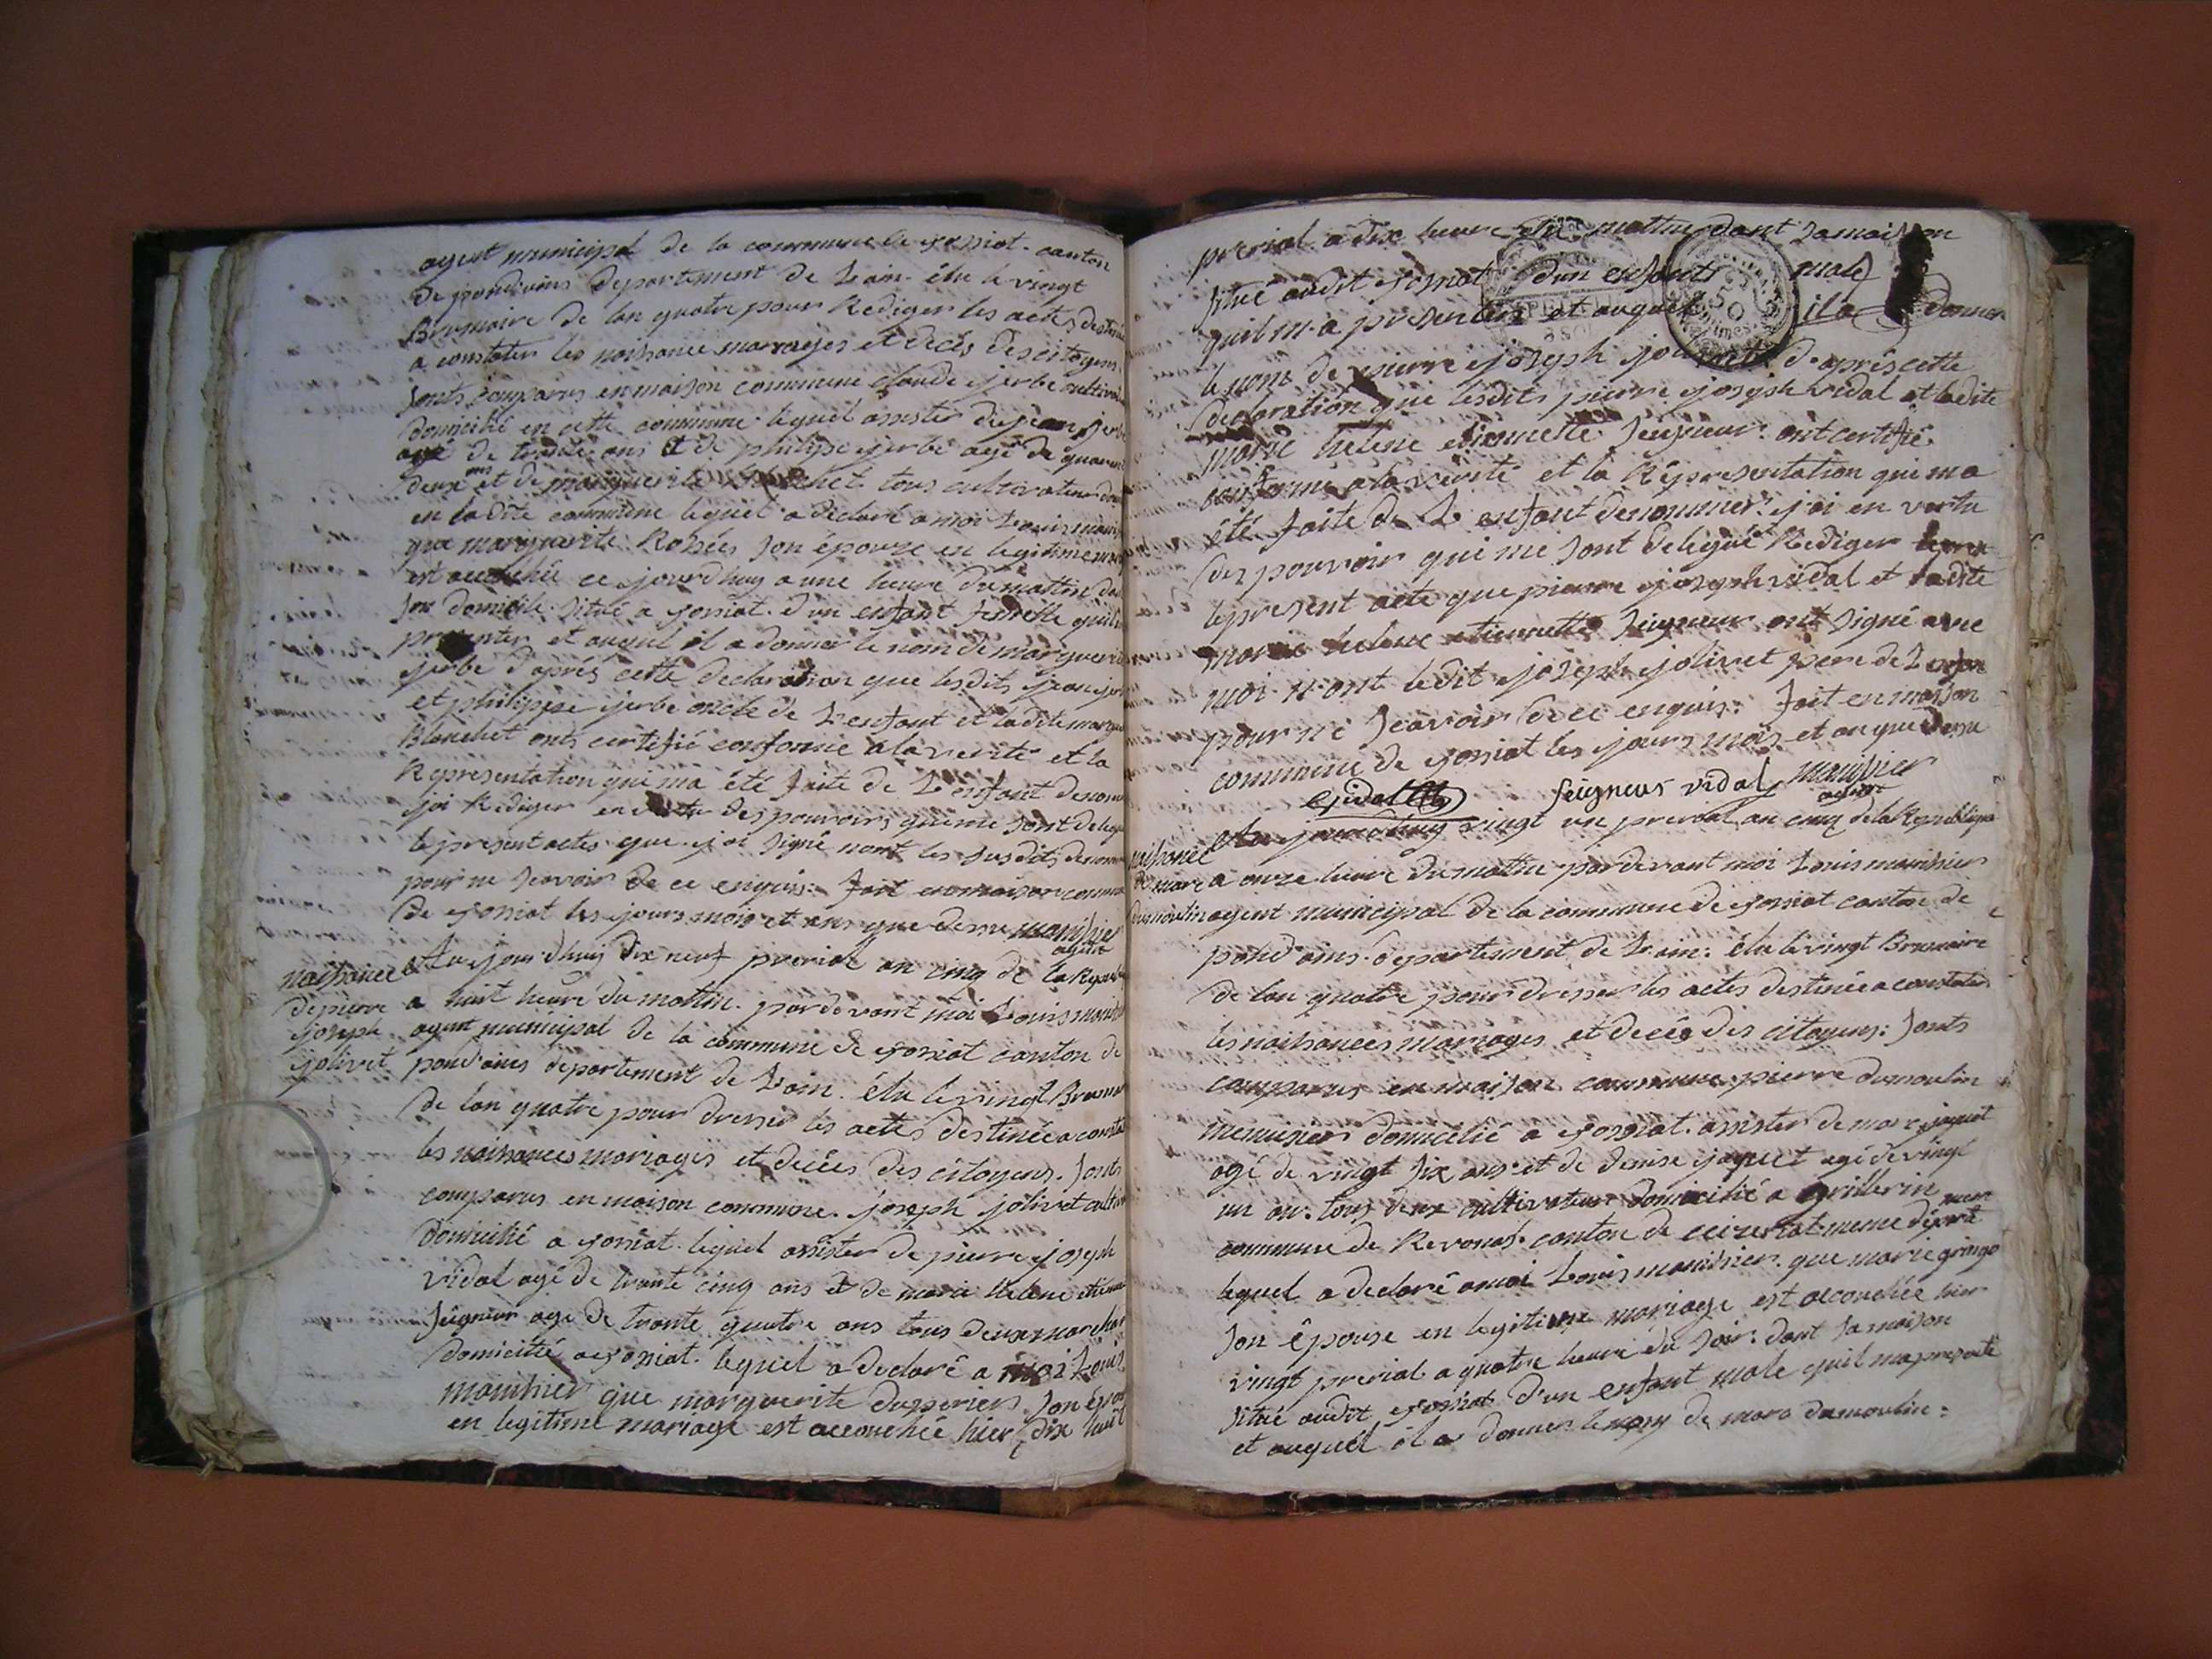 agent municipal de la commune de jossiat. canton
de pondains departement de Lain. élu le vingt
Brumaire de lan quatre pour Rediger les actes destiné
a constater les naissance marrayes et decés des citoyens.
sonts comparus en maison commune claude jerbe cultivat
domicilié en cette commune. lequel assister de jean jerbe
agé de trente ans et de philipe jerbe agé de quarent
deux ans et de marguerite Blanchet. tous cultivateur dom
en ladite commune lequel a declaré a moi Louis manis
que marguerite Rosiée son épouse en legitime mar
est accouchée ce jourdhuy a une heure du mattin da
son domicile. situé a jossiat. d'un enfant femelle quil
presenter et auquel il a donner le nom de marguerit
jerbe d'aprés cette declaration que lesdits jean jer
et philippe jerbe oncle de L'enfant et ladite margue
Blanchet onts certifié conforme a la verité et la
Representation qui ma été faite de L'enfant denom
j'ai Rediger en vertu des pouvoirs qui me sont delegu
le present actes que j'ai signé nont les susdits denom
pour ne scavoir de ce enquis. fait en maison commun
de jossiat les jours mois et ans que dessu manissier
agent
naissance
de pierre
joseph
jolivet
Au jour d'huy dix neuf prerial an cinq de la Republ
a huit heure du mattin. pardevant moi Louis manis
agent municipal de la commune de jossiat canton de
pond'ains departement de Lain. élu le vingt Brumai
de lan quatre pour dresser les actes destinée a consta
les naissances mariages et decées des citoyens. sonts
comparus en maison commune. joseph jolivet cultiv
domicilié a jossiat. lequel assister de pierre joseph
vidal agé de trante cinq ans et de marie helene etienne
seigneur age de trante quatre ans tous deux marchan
domicilié a jossiat. lequel a declaré a moi Louis
manissier que marguerite duperier. son épou
en legitime mariage est accouchée hier dix huit
prerial a dix heure du mattin dant sa maison
situé audit jossiat d'un enfants male
quil m'a presenter et auquel il a donner
le nom de pierre joseph jolivet d'aprés cette
declaration que lesdits pierre joseph vidal et ladite
marie helene etiennette seigneur. ont certifié
conforme a la verité et la Representation qui ma
été faite de L'enfant denommer. j'ai en vertu
des pouvoir qui me sont delegué Rediger
le present acte que pierre joseph vidal et ladite
marie helene etiennette seigneur ont signé avec
moi. n'ont ledit joseph jolivet pere de L'enfan
pour ne scavoir de ce enquis. fait en maison
commune de jossiat les jours mois et an que dessu
seigneur vidal manissier
agent
naissance
de marc
dumoulin
Au jourdhuy vingt un prerial an cinq de la Republique
a onze heure du mattin pardevant moi Louis manissier
agent municipal de la commune de jossiat canton de
pond'ains. departement de Lain. élu le vingt Brumaire
de lan quatre pour dresser les actes destinée a constater
les naissances marrages et decés des citoyens: sonts
comparus en maison commune pierre dumoulin
menuisier domicilié a jossiat. assister de marc jaquet
agé de vingt six ans et de denise jaquet agé de vingt
un an. tous deux cultivateur domicilié a grillerin
commune de Revonas. canton de ceizeriat meme départ
lequel a declaré a moi Louis manissier. que marie gringo
son épouse en legitime mariage est accouchée hier
vingt prerial a quatre heure du soir. dant sa maison
situé audit jossiat d'un enfant male quil ma presenté
et auquel il a donner le nom de marc dumoulin: